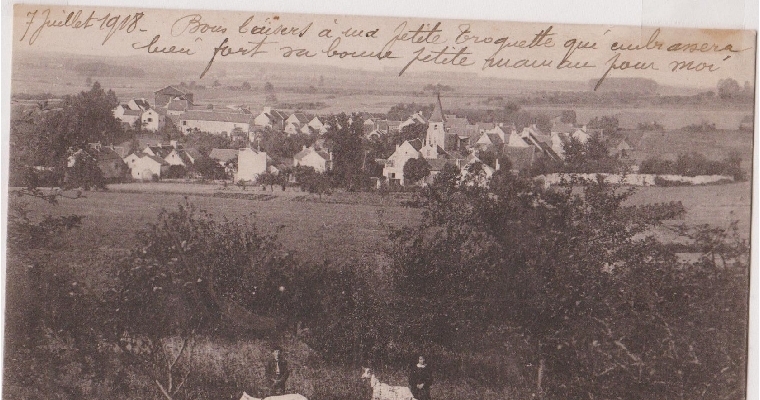 7 Juillet 1918 - Bons baisers à ma petite Croquette qui embrassera
bien fort sa bonne petite maman pour moi